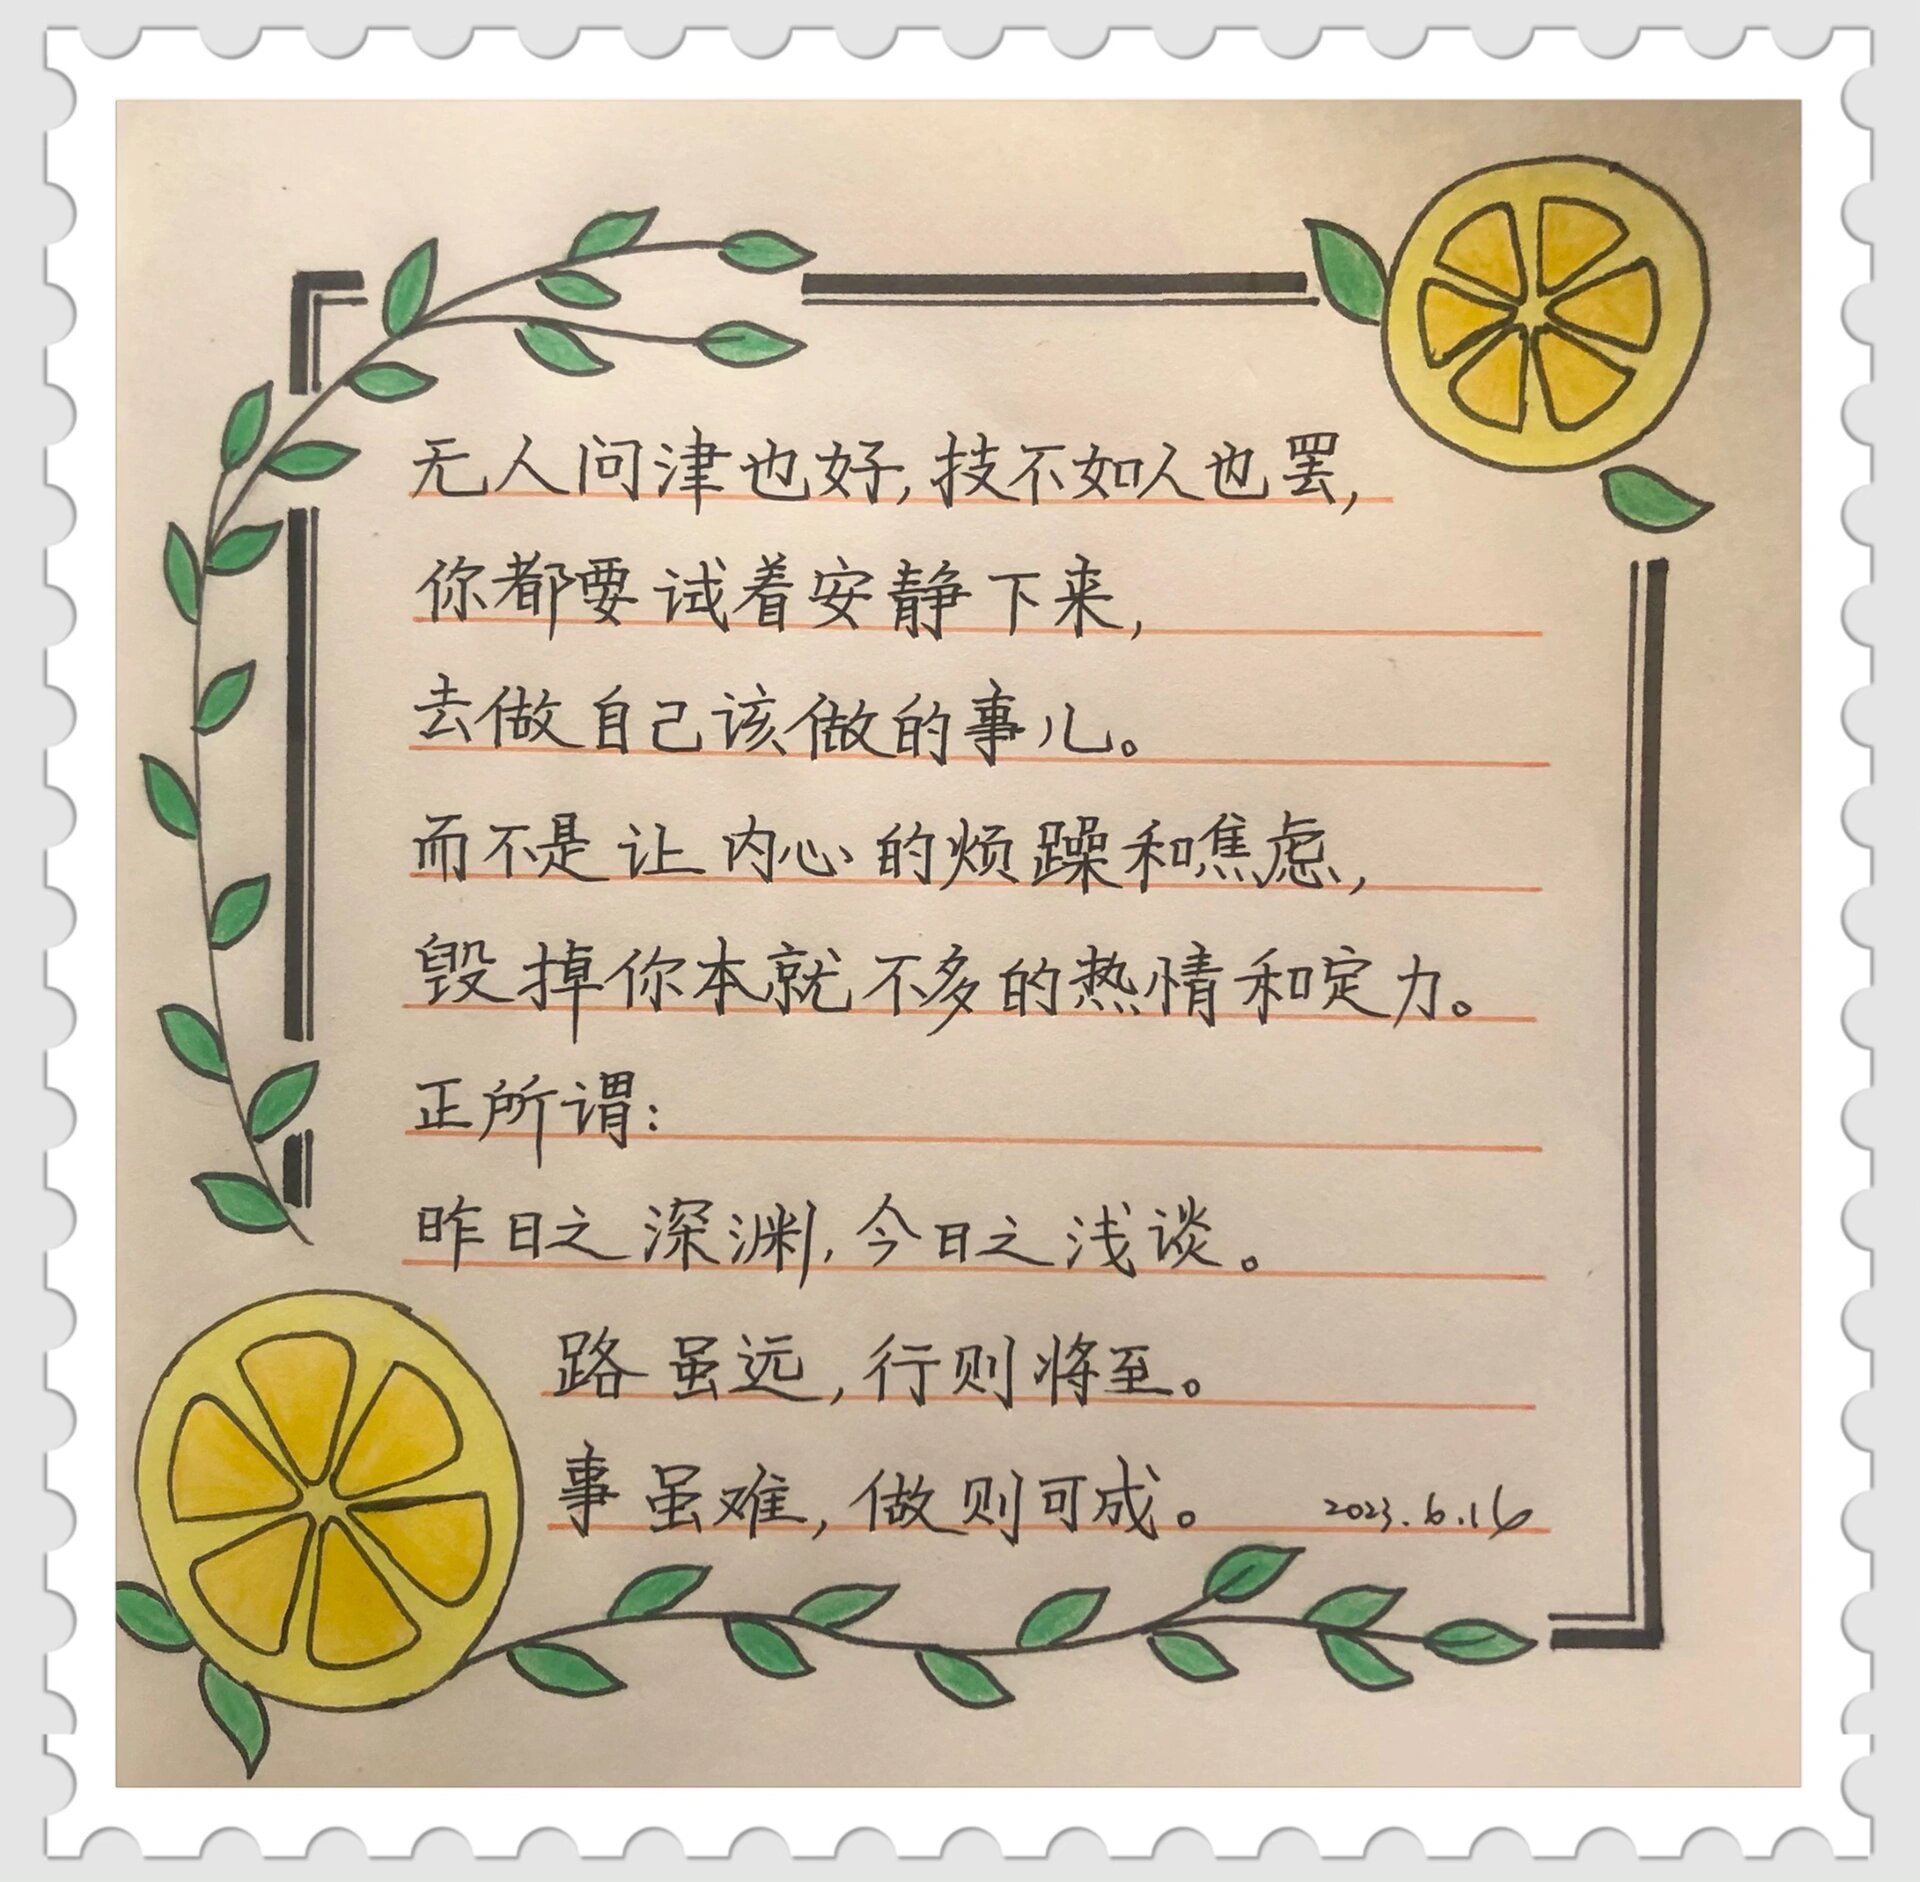 无人问津也好,技不如人也罢,
你都要试着安静下来,
去做自己该做的事儿。
而不是让内心的烦躁和焦虑,
毁掉你本就不多的热情和定力。
正所谓:
昨日之深渊,今日之浅谈。
路虽远,行则将至。
事虽难,做则可成。 2023.6.16